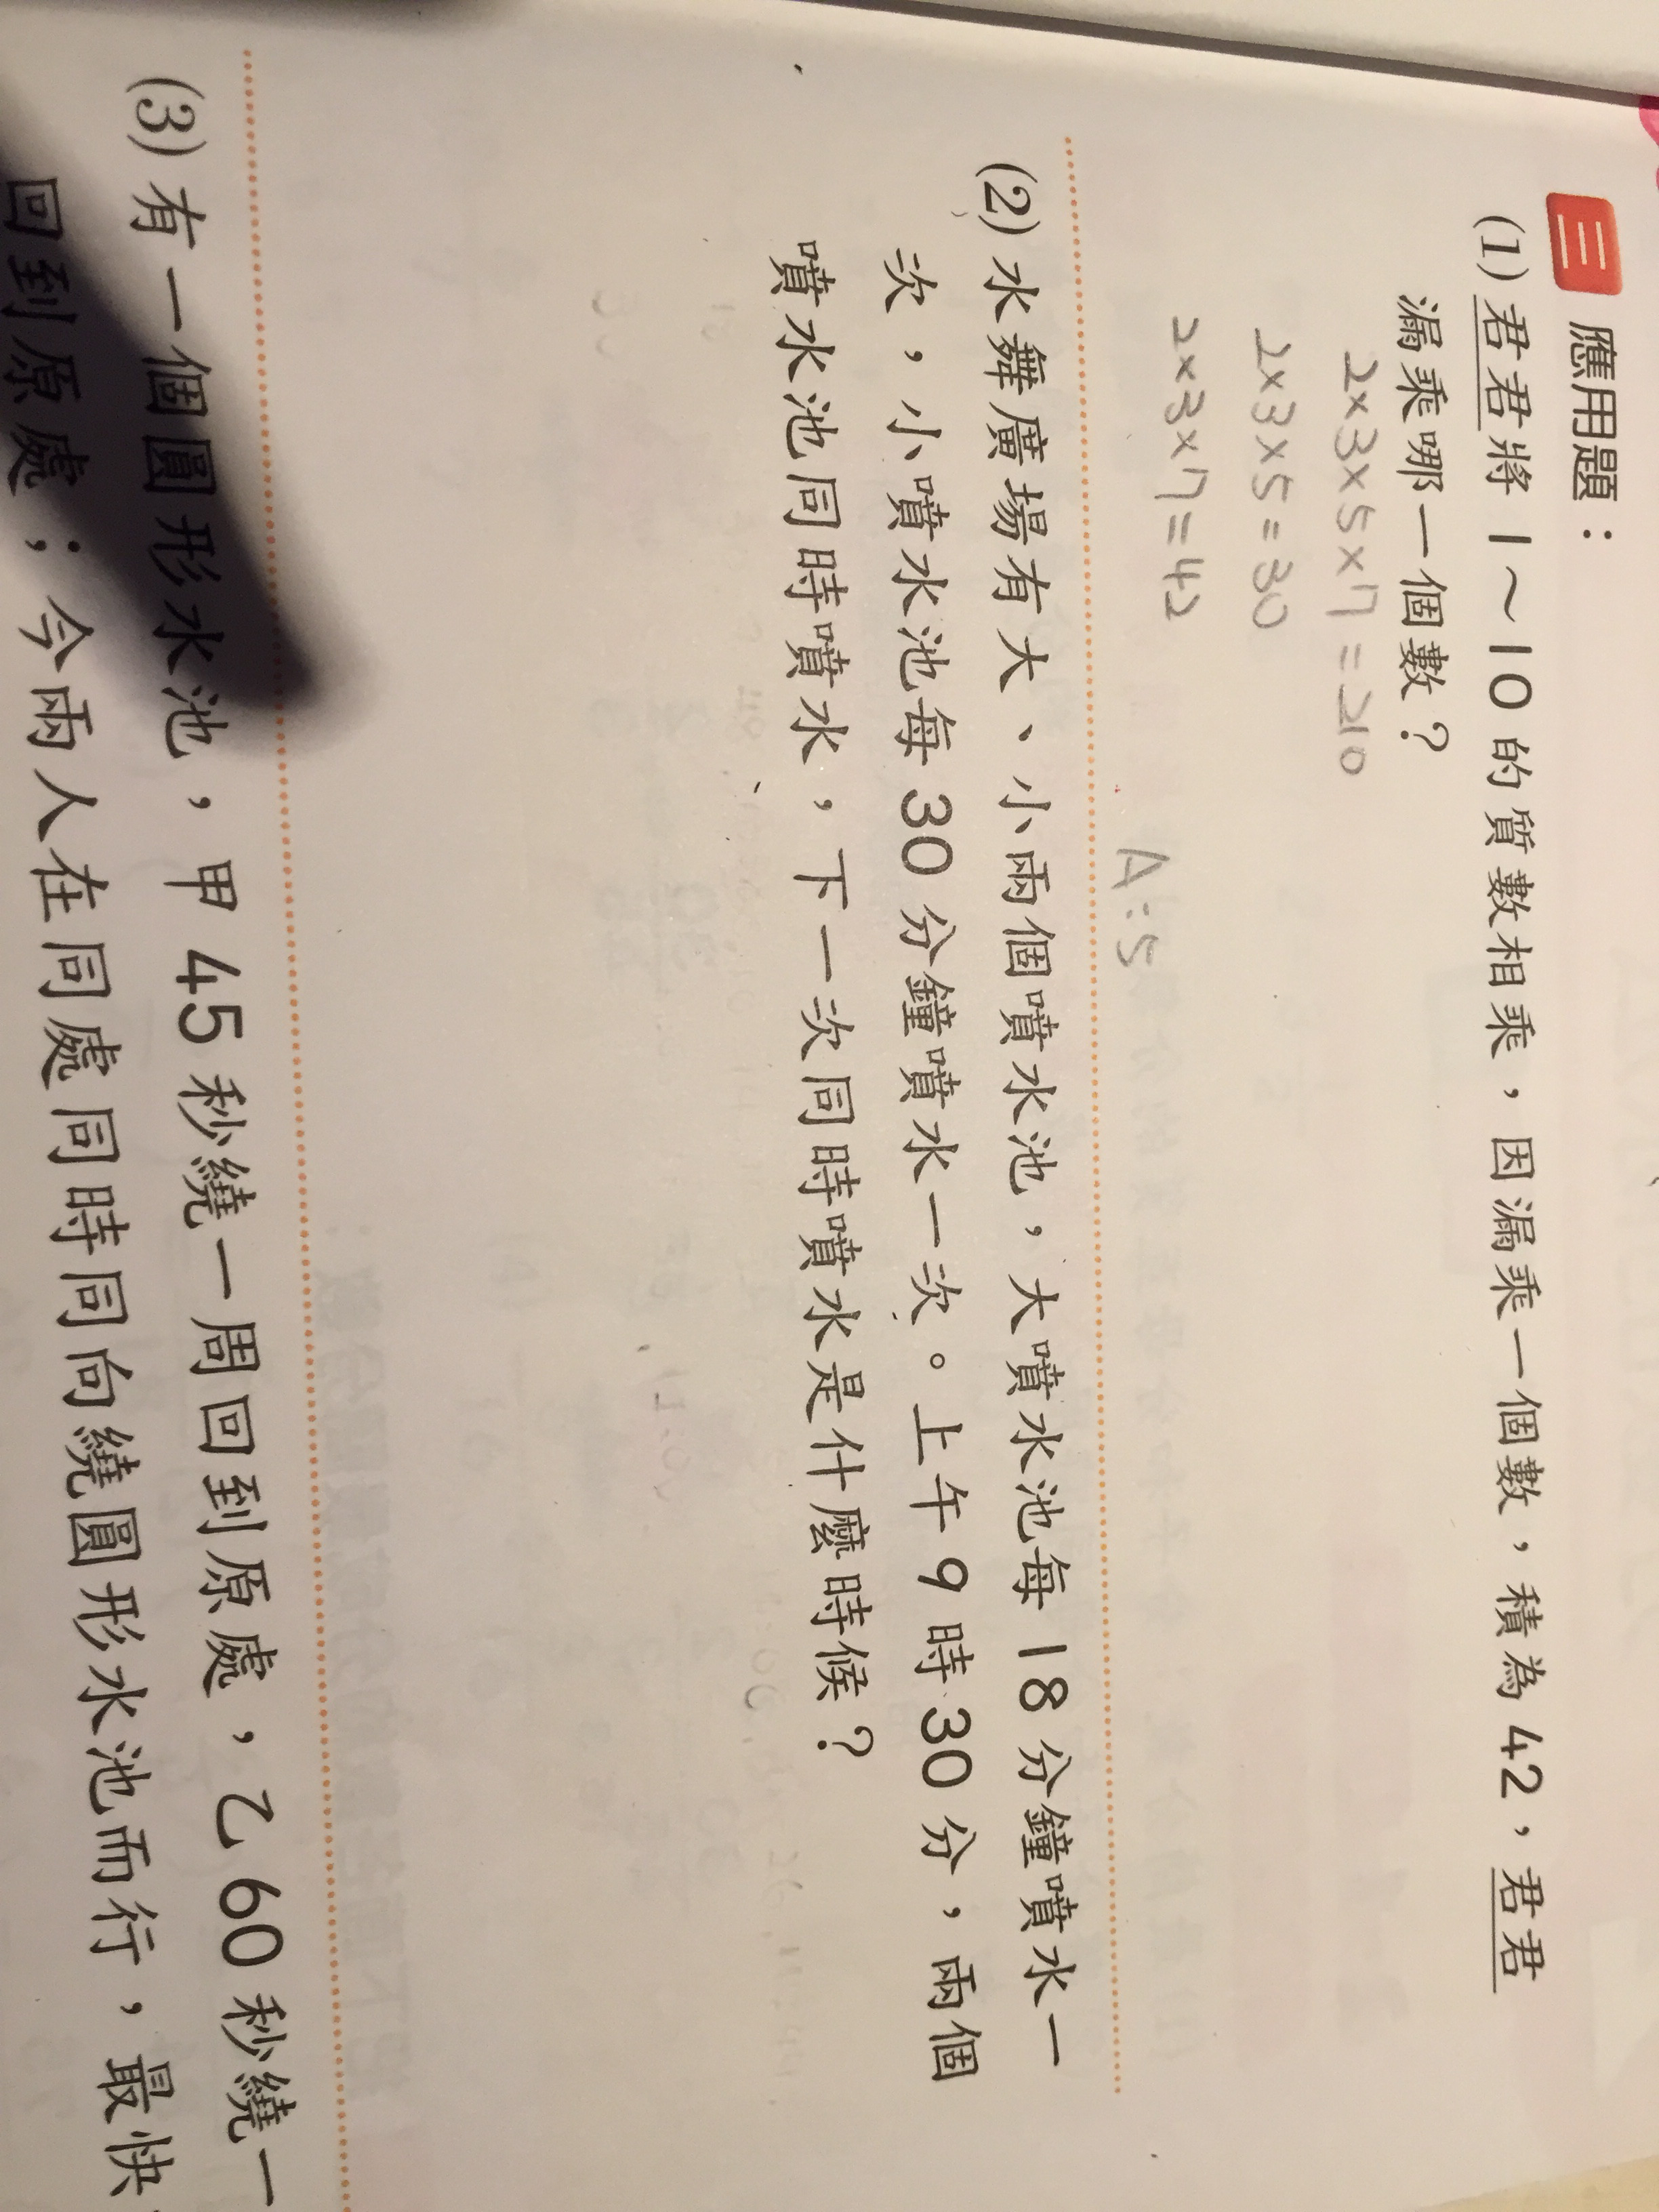 三 應用題：
(1) 君君將 1～10 的質數相乘，因漏乘一個數，積為 42，君君
漏乘哪一個數？
2×3×5×7=210
2×3×5=30
2×3×7=42
A:5
(2) 水舞廣場有大、小兩個噴水池，大噴水池每 18 分鐘噴水一
次，小噴水池每 30 分鐘噴水一次。上午 9 時 30 分，兩個
噴水池同時噴水，下一次同時噴水是什麼時候？
(3) 有一個圓形水池，甲 45 秒繞一周回到原處，乙 60 秒繞一
回到原處；今兩人在同處同時同向繞圓形水池而行，最快